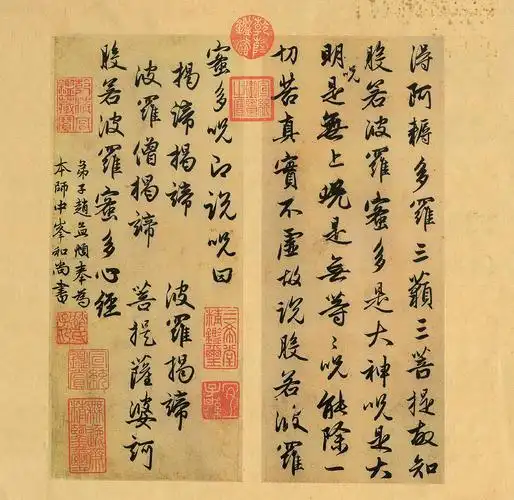 得阿耨多羅三藐三菩提故知
般若波羅蜜多是大神咒是大
明咒是無上咒是無等〻咒能除一
切苦真實不虛故說般若波羅
蜜多咒即說咒曰
揭諦揭諦 波羅揭諦
波羅僧揭諦 菩提薩婆訶
般若波羅蜜多心經
弟子趙孟頫奉為
本師中峯和尚書
乾隆鑑賞
三希堂精鑑璽
宜子孫